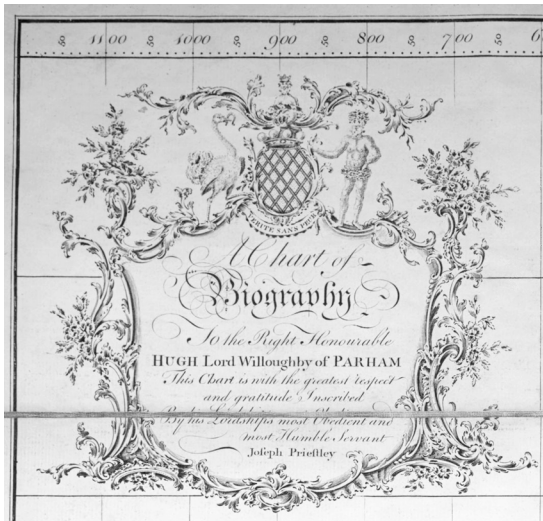 50 1100 50 1000 50 900 50 800 50 700 50 6
VERITE SANS PEUR
A Chart of
Biography
To the Right Honourable
HUGH Lord Willoughby of PARHAM
This Chart is with the greatest respect
and gratitude Inscribed
By his Lordships most Obedient and
most Humble Servant
Joseph Priestley